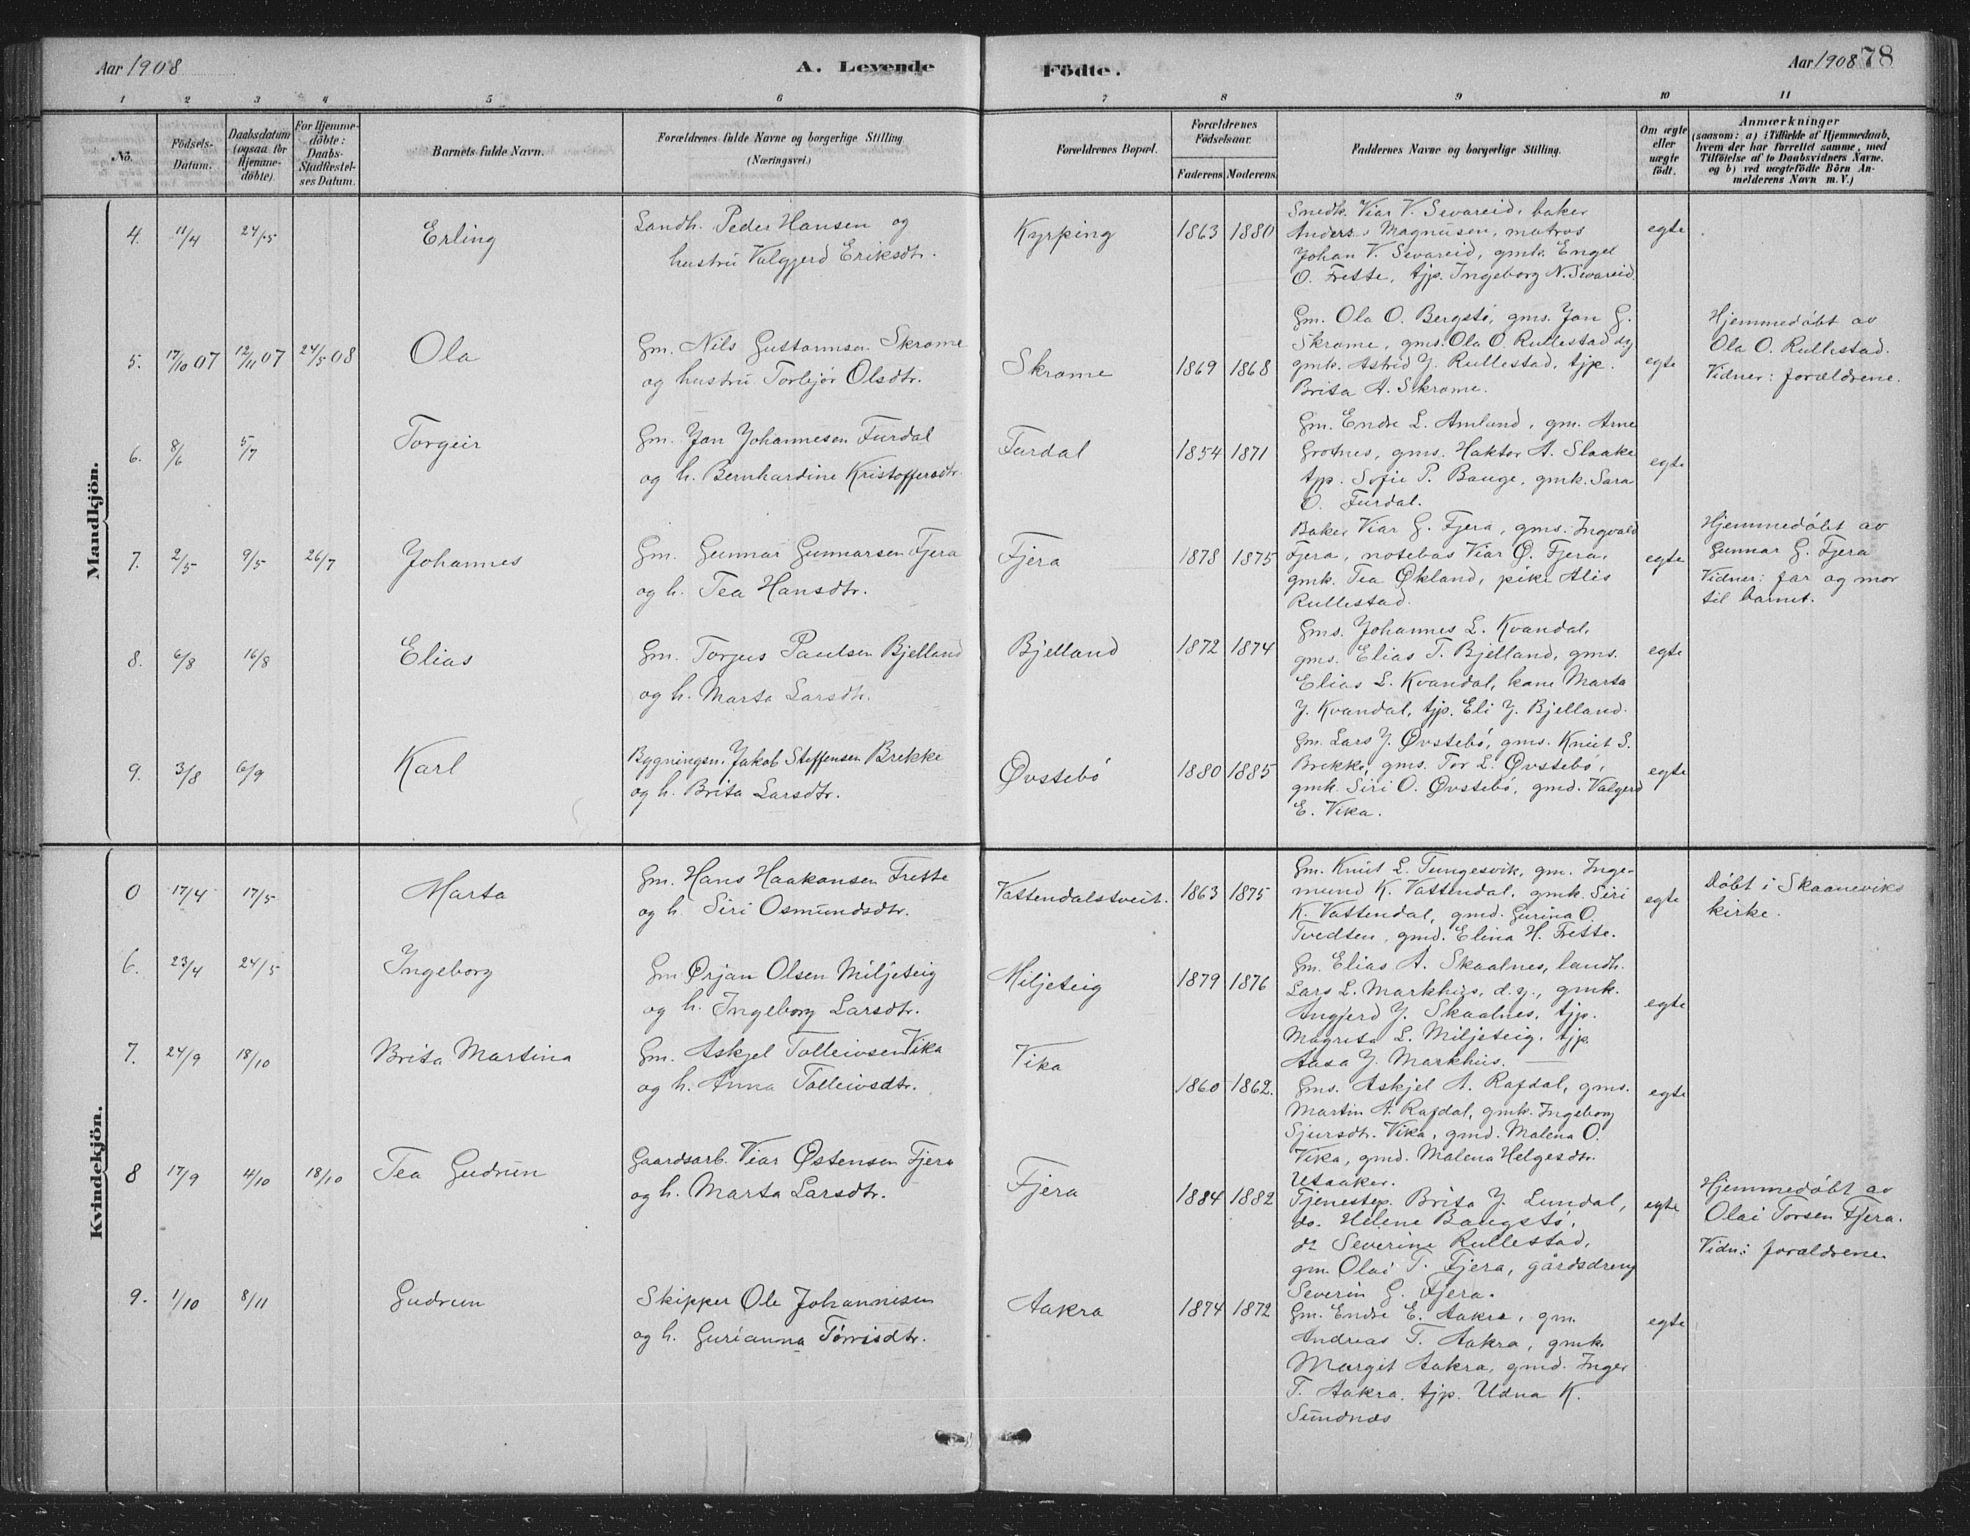 Aar 1908
A. Levende
Födte.
Aar 1908
78
1 2 3 4 5 6 7 8 9 10 11
No.
Födsels-
Datum.
Daabsdatum
(ogsaa for
Hjemme-
döbte).
For Hjemme-
döbte:
Daabs-
Stadfæstel-
ses Datum.
Barnets fulde Navn.
Forældrenes fulde Navne og borgerlige Stilling
(Næringsvei.)
Forældrenes Bopæl.
Forældrenes
Födselsaar.
Faderens Moderens
Faddernes Navne og borgerlige Stilling.
Om ægte
eller
uægte
født.
Anmærkninger
(saasom: a) i Tilfælde af Hjemmedaab,
hvem der har forrettet samme, med
Tilföielse af to Daabsvidners Navne.
og b) ved uægtefödte Börn An-
melderens Navn m. V.)
Mandkjön.
4. 11/4 24/5 Erling
Landh. Peder Hansen og
hustru Valgjerd Eriksdtr.
Kyrping 1863 1880
Smedk. Viar V. Sevareid, baker
Anders Magnusen, matros
Johan V. Sevareid, gmk. Engel
O. Frette, tjp. Ingeborg N. Sevareid.
egte
5. 17/10 07 12/11 07 24/5 08 Ola
Gm. Nils Gustavnsen Skrome
og hustru Torbjør Olsdtr.
Skrome 1869 1868
Gm. Ola O. Bergstö, gms. Jan G.
Skrome, gms. Ola O. Rullestad og
gmk. Astrid J. Rullestad, tjp.
Brita A. Skrome.
egte
Hjemmedöbt av
Ola O. Rullestad.
Vidner: forældrene.
6. 8/6 5/7 Torgeir
Gm. Jan Johannesen Furdal
og h. Bernhardine Kristoffersdtr.
Furdal 1854 1871
Gm. Endre L. Amland, gm. Arne
Grotnes, gms. Haktor A. Slaake
tjp. Sofie P. Bauge, gmk. Sara
O. Furdal.
egte
7. 2/5 9/5 26/7 Johannes
Gm. Gunnar Gunnarsen Fjera
og h. Tea Hansdtr.
Fjera 1878 1875
Baker Viar G. Fjera, gms. Ingvald
Fjera, notebas Viar Ø. Fjera,
gmk. Tea Økland, pike Alis
Rullestad.
egte
Hjemmedöbt av
Gunnar G. Fjera
Vidner: far og mor
til barnet.
8. 6/8 16/8 Elias
Gm. Torjus Paulsen Bjelland
og h. Marta Larsdtr.
Bjelland 1872 1874
Gms. Johannes L. Kvandal,
gms. Elias T. Bjelland, gms.
Elias L. Kvandal, kone Marta
J. Kvandal, tjp. Eli J. Bjelland.
egte
9. 3/8 6/9 Karl
Bygningsn. Jakob Steffensen Brekke
og h. Brita Larsdtr.
Øvstebö 1880 1885
Gm. Lars J. Øvstebö, gms. Knut S.
Brekke, gms. Tor L. Øvstebö,
gmk. Siri O. Øvstebö, gmd. Valgerd
E. Vika.
egte
Kvindekjön.
0 17/4 17/5 Marta
Gm. Hans Haakonsen Frette
og h. Siri Osmundsdtr.
Vattendalstveit. 1863 1875
Gm. Knut L. Tungesvik, gm. Inge-
mund K. Vattendal, gmk. Siri
K. Vattendal, gmd. Gurina O.
Tvedten, gmd. Elina H. Frette.
egte
Döbt i Skaaneviks
kirke.
6. 23/4 24/5 Ingeborg
Gm Ørjan Olsen Miljeteig
og h. Ingeborg Larsdtr.
Miljeteig 1879 1876
Gm. Elias A. Skaalnes, landh.
Lars L. Markhus, d.y., gmk.
Angjerd J. Skaalnes, tjp.
Magreta L. Miljeteig, tjp.
Aasa J. Markhus.
egte
7. 24/9 18/10 Brita Martina
Gm. Askjel Tolleivsen Vika
og h. Anna Tolleivsdtr.
Vika 1860 1862.
Gms. Askjel A. Rafdal, gms.
Martin A. Rafdal, gmk. Ingeborg
Sjursdtr. Vika, gmd. Malena O.
Vika, gmd. Malena Helgesdtr.
Utaaker.
egte
8 17/9 4/10 18/10 Tea Gudrun
Gaardsarb. Viar Østensen Fjera
og h. Marta Larsdtr.
Fjera 1884 1882
Tjenestep. Brita J. Lundal,
do. Helene Baugstö,
do Severine Rullestad,
gm. Olai T. Fjera, gårdsdreng
Severin G. Fjera.
egte
Hjemmedöbt av
Olai Torsen Fjera.
Vidn: forældrene.
9. 1/10 8/11 Gudrun
Skipper Ole Johannesen
og h. Gurianna Törrisdtr.
Aakra 1874 1872
Gm. Endre E. Aakra, gm.
Andreas T. Aakra, gmk.
Margit Aakra, gmd. Inger
T. Aakra, tjp. Udna K.
Sundnæs
egte